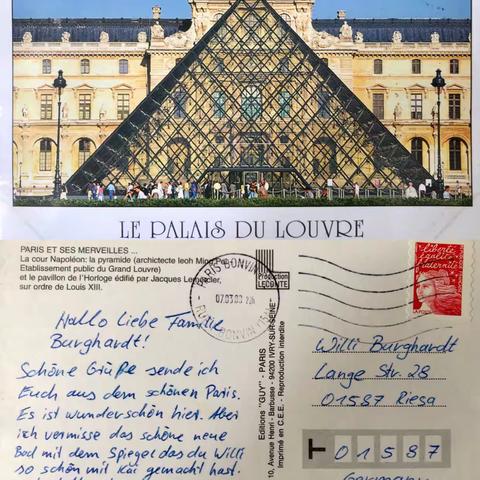 LE PALAIS DU LOUVRE
PARIS ET SES MERVEILLES ...
La cour Napoléon: la pyramide (architecte Ieoh Ming Pei)
Etablissement public du Grand Louvre)
et le pavillon de l'Horloge édifié par Jacques Lemercier,
sur ordre de Louis XIII.
Production
LECONTE
PARIS BONVIN
07.03.03
RUE BONVIN
liberté
égalité
fraternité
LA POSTE
Hallo Liebe Familie
Burghardt!
Schöne Grüße sende ich
Euch aus dem schönen Paris.
Es ist wunderschön hier. Aber
ich vermisse das schöne neue
Bad mit dem Spiegel das du Willi
so schön mit Kai gemacht hast.
Editions "GUY" - PARIS
10, Avenue Henri - Barbusse - 94200 IVRY-SUR-SEINE
Imprimé en C.E.E. - Reproduction interdite
Willi Burghardt
Lange Str. 28
01587 Riesa
T 01587
Germany